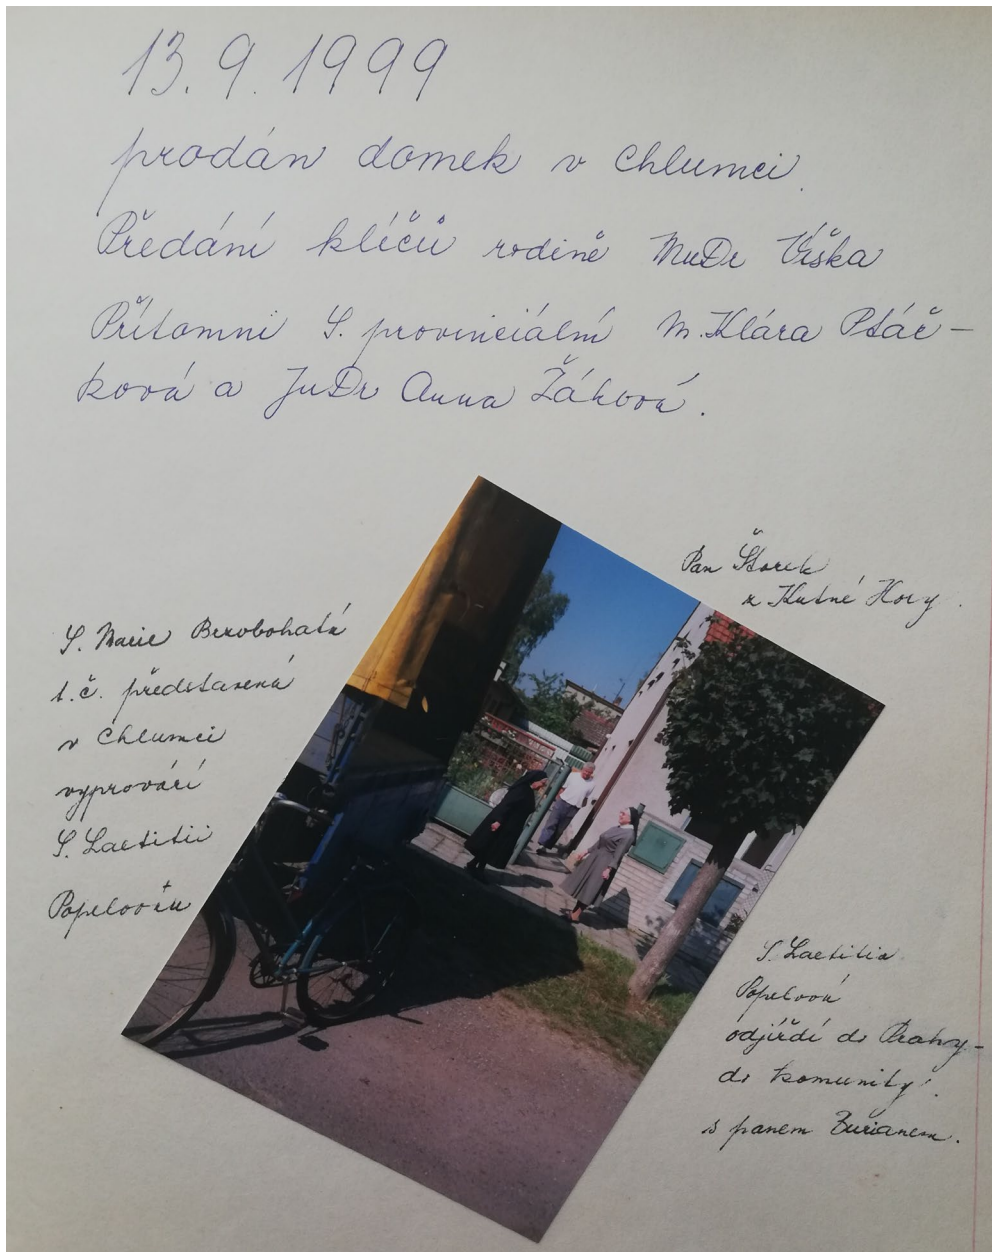 13. 9. 1999
prodán domek v Chlumci.
Předání klíčů rodině MuDr Víška
Přítomni S. provinciální M. Klára Ptáč-
ková a JuDr Anna Žáková.
Pan Štorek
z Kutné Hory.
S. Marie Bezobohatá
t.č. představená
v Chlumci
vyprovází
S. Laetitii
Popelovou
S. Laetitia
Popelová
odjíždí do Prahy-
do komunity.
s panem Buřianem.